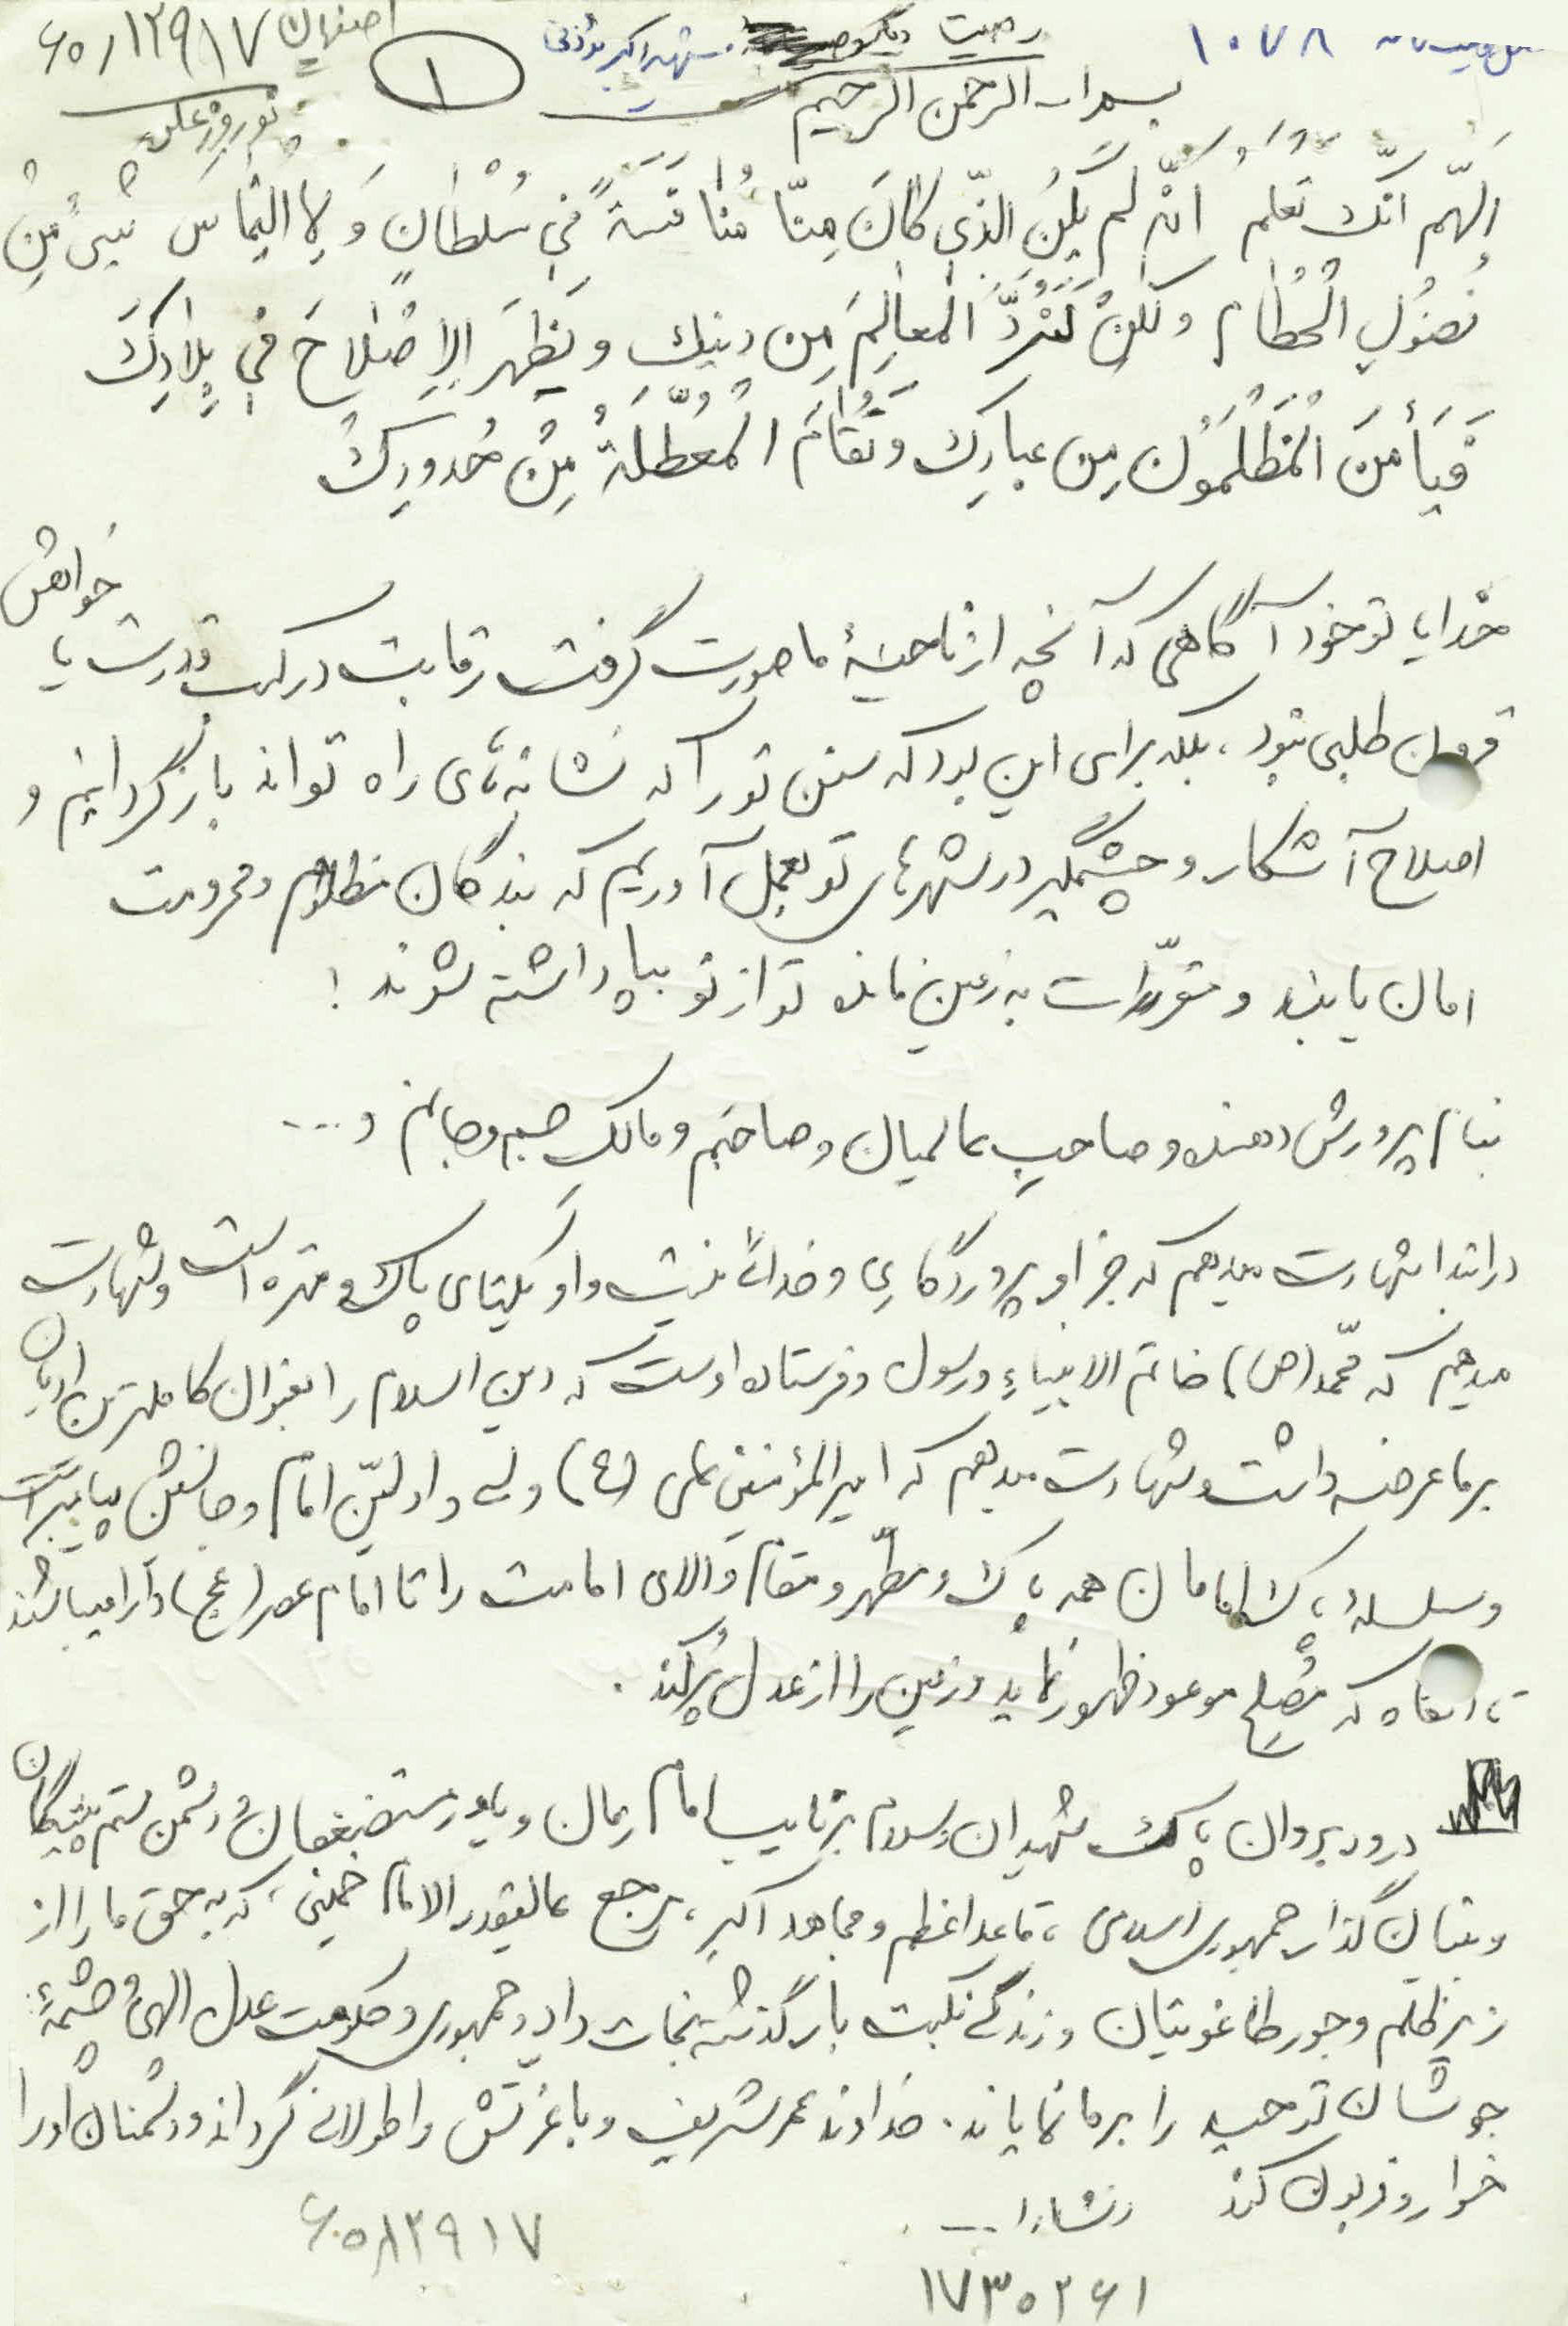 اصفهان ۶۰/۱۲۹۱۷
۱
وصیت شهید اکبر
۱۰۷۸
بسم الله الرحمن الرحیم
اَلّهُم اِنَّکَ تَعلم اَنّهُ لم یَکُنِ الّذی کانَ مِنّا مُنافَسَةً فی سُلْطانٍ وَ لا اِلتِماسَ شَیئٍ مِنْ
فُضُولِ الْحُطامِ ولکِنْ لِنَرُدَّ الْمعالِمَ مِن دینِکِ و نُظهِرَ الاِصْلاحَ فی بِلادِکَ
فَیَأمَنَ الْمَظْلُمَوُنَ مِن عبادِکَ وَ تُقامَ الْمُعَطَّلَةُ مِنْ حُدودِکْ
خدایا تو خود آگاهی که آنچه از ناحیۀ ما صورت گرفت رقابت در کسب قدرت یا خواهش
طلبی نبود، بلکه برای این بود که سنن تو را که نشانه‌های راه تواند بازگردانیم و
اصلاح آشکار و چشمگیر در شهرهای تو بعمل آوریم که بندگان مظلوم و محرومت
امان یابند و مقرّرات به زمین مانده تو از نو بپا داشته شوند !
بنام پرورش دهنده و صاحب عالمیان و صاحبم و مالک جسم و جانم و ....
در ابتدا شهادت میدهم که جز او پروردگاری و خدائی نیست و او یکتای پاک و منزه است و شهادت
میدهم که محّمد (ص) خاتم الانبیاءِ و رسول و فرستاده اوست که دین اسلام را بعنوان کاملترین ادیان
بر ما عرضه داشت و شهادت میدهم که امیرالمؤمنین علی (ع) ولی و اولّین امام و جانشین پیامبر است
و سلسلۀ پاک امامان همه پاک و مطّهر و مقام والای امامت را تا امام عصر (عج) دارا میباشند
تا آنگاه که مُصْلح موعود ظهور نماید و زمین را از عدل پُر کند .
درود بروان پاک شهیدان اسلام بر نایب امام زمان و یاور مستضعفان و دشمن ستم پیشگان
و بنیان گذار جمهوری اسلامی ، قاعد اعظم و مجاهد اکبر ، مرجع عالیقدر الامام خمینی ، که به حق ما را از
زیر ظلم و جور طاغوتیان و زندگی نکبت بار گذشته نجات داد و جمهوری و حکومت عدل الهی و چشمۀ
جوشان توحید را بر ما نمایاند . خداوند عمر شریف و با عزّتش را طولانی گرداند و دشمنان او را
خوار و زبون کند انشاءا...
۶۰/۱۲۹۱۷
۱۷۳۰۲۶۱